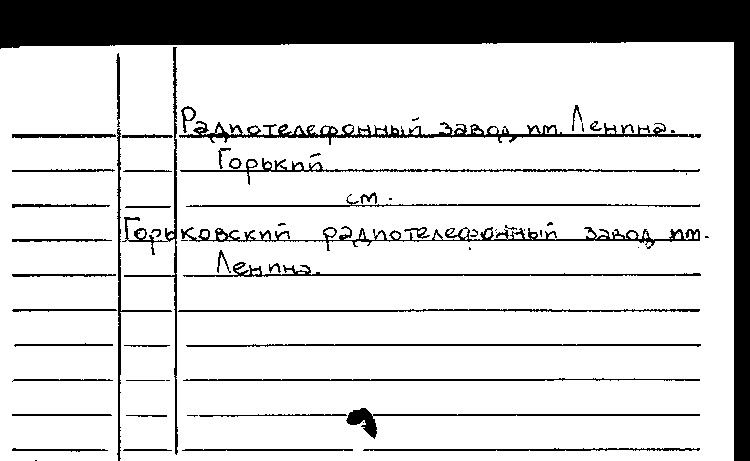 Радиотелефонный завод им. Ленина.
Горький
см.
Горьковский радиотелефонный завод им.
Ленина.